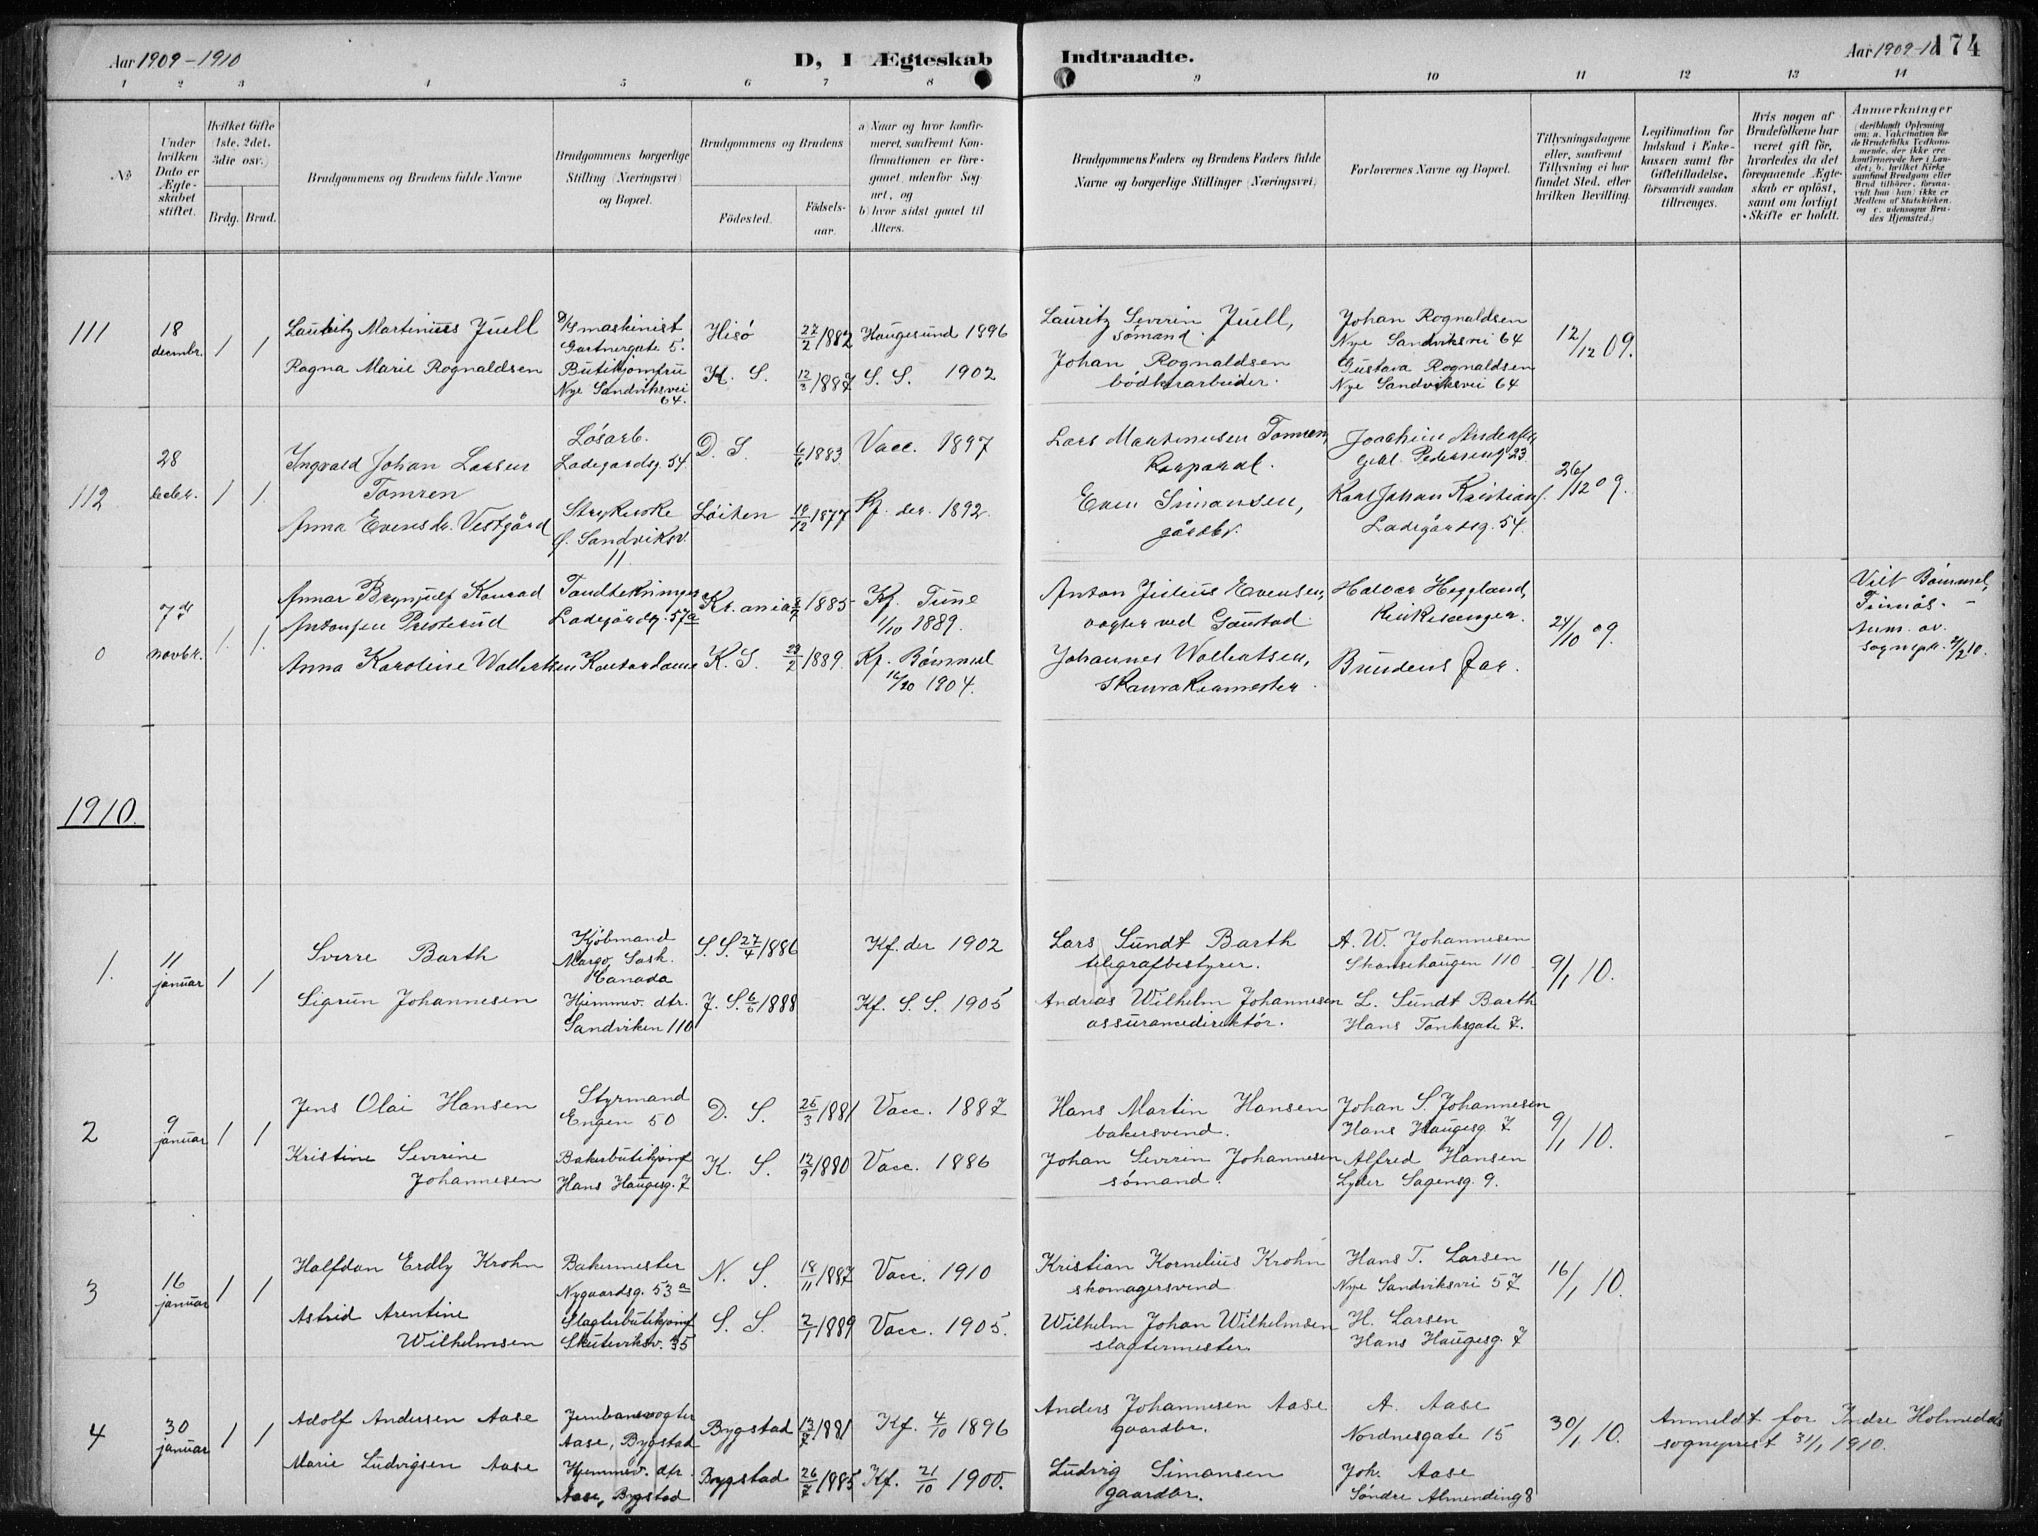 Aar 1909-1910
D, I Ægteskab
Indtraadte.
Aar 1909-10
174
1 2 3 4 5 6 7 8 9 10 11 12 13 14
No
Under hvilken Dato er Ægteskabet stiftet.
Hvilket Gifte (1ste, 2det, 3die osv.)
Brdg. Brud.
Brudgommens og Brudens fulde Navne
Brudgommens borgerlige Stilling (Næringsvei) og Bopæl.
Brudgommens og Brudens
Födested.
Födselsaar.
a) Naar og hvor konfirmeret, saafremt Konfirmationen er foregaaet udenfor Sognet, og
b) hvor sidst gaaet til Alters.
Brudgommens Faders og Brudens Faders fulde Navne og borgerlige Stillinger (Næringsvei).
Forlovernes Navne og Bopæl.
Tillysningsdagene eller, saafremt Tillysning ei har fundet Sted, efter hvilken Bevilling.
Legitimation for Indskud i Enkekassen samt for Giftetilladelse, forsaavidt saadan tiltrænges.
Hvis nogen af Brudefolkene har været gift för, hvorledes da det foregaaende Ægteskab er oplöst, samt om lovligt Skifte er holdt.
Anmærkninger
(deriblandt Oplysning om: a. Vakcination for de Brudefolks Vedkommende, der ikke ere konfirmerede her i Landet; b. hvilket Kirkesamfund Brudgom eller Brud tilhörer, forsaavidt han (hun) ikke er Medlem af Statskirken, og c. udensogns Brudes Hjemsted.)
111
18 decmbr.
1 1
Lauritz Martinius Juell
D/S maskinist
Gartnergate 5.
Hisö
27/2 1882
Haugesund 1896
Lauritz Severin Juell,
sömand.
Johan Rognaldsen
Nye Sandviksvei 64
12/12 09.
Ragna Marie Rognaldsen
Butikjomfru
Nye Sandviksvei 64.
K. S.
12/3 1887
S. S. 1902
Johan Rognaldsen
bödkerarbeider.
Gustava Rognaldsen
Nye Sandviksvei 64
112
28 decbr.
1 1.
Ingvald Johan Larsen
Tomren
Lösarb.
Ladegårdsg. 54.
D. S.
6/6 1883
Vacc. 1897
Lars Martinusen Tomren,
Korporal.
26/12 09.
Anna Evensdr. Vestgård
Strykerske
Ö. Sandviksv. 11
Löiten
19/12 1877
Kf. der. 1892.
Even Simonsen,
gårdbr.
Karl Johan Kristians.
Ladegårdsg. 54.
0
7de novbr.
1. 1.
Annar Brynjulf Konrad
Antonsen Presterud
Ladegårdsg. 57a
Kr.ania
1885
Kf. Tune
1/10 1889.
Anton Julius Evensen,
vogter ved Gaustad.
Halvor Heggland,
Kirkesanger.
24/10 09.
Viet Bömmel,
Finnås.
Anm. av
sognepr. 2/2 10.
Anna Karoline Wallertsen
Kontordame
K. S.
23/2 1889.
Kf. Bömmel
16/10 1904.
Johannes Wollertsen,
Skomakermester.
Brudens far.
1910.
1.
11 januar
1 1
Sverre Barth
Kjöbmand
Margo, Sask.
Canada
S. S. 27/4 1886
Kf. der 1902
Lars Sundt Barth
telegrafbestyrer.
A. W. Johannesen
Skansehaugen 110
9/1 10.
Sigrun Johannesen
Hjemmev. dtr.
Sandviken 110
J. S. 6/6 1888
Kf. S. S. 1905
Andreas Wilhelm Johannesen
assurancedirektör.
L. Sundt Barth
Hans Tanksgate 7.
2
9 januar
1 1
Jens Olai Hansen
Styrmand
Engen 50
D. S.
25/3 1881
Vacc. 1887
Hans Martin Hansen
bakersvend.
Johan S. Johannesen
Hans Haugesg. 7
9/1 10.
Kristine Severine
Johannesen
Bakerbutikjomf
Hans Haugesg. 7
K. S.
12/9 1880
Vacc. 1886
Johan Severin Johannesen
sömand.
Alfred Hansen
Lyder Sagensg. 9.
3
16 januar
1 1
Halfdan Erdly Krohn
Bakermester
Nygaardsg. 53a
N. S.
18/11 1887
Vacc. 1910
Kristian Kornelius Krohn
skomagersvend
Hans T. Larsen
Nye Sandviksvei 57
16/1 10.
Astrid Arentine
Wilhelmsen
Slagterbutikjomf
Skuteviksv. 35
S. S.
2/1 1889
Vacc. 1905.
Wilhelm Johan Wilhelmsen
slagtermester.
H. Larsen
Hans Haugesg. 7
4
30 januar
1 1
Adolf Andersen Aase
Jernbanevogter
Aase, Bygstad
Bygstad
13/7 1881
Kf. 4/10 1896
Anders Johannesen Aase
gaardbr.
A. Aase
Nordnesgate 15
30/1 10.
Anmeldt for Indre Holmedals
sogneprest 31/1 1910.
Marie Ludvigsen Aase
Hjemmev. dtr.
Aase, Bygstad
Bygstad
26/7 1885
Kf. 21/10 1900.
Ludvig Simonsen
gaardbr.
Joh. Aase
Söndre Almending 8